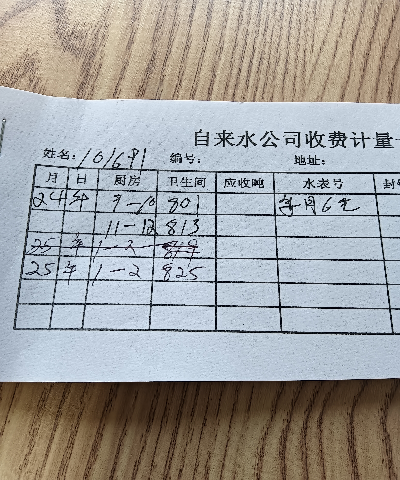 自来水公司收费计量
姓名: 编号: 地址:
月 日 厨房 卫生间 应收吨 水表号
24 年 9-10 801 每月6元
11-12 813
25 年 1-2
25 年 1-2 825